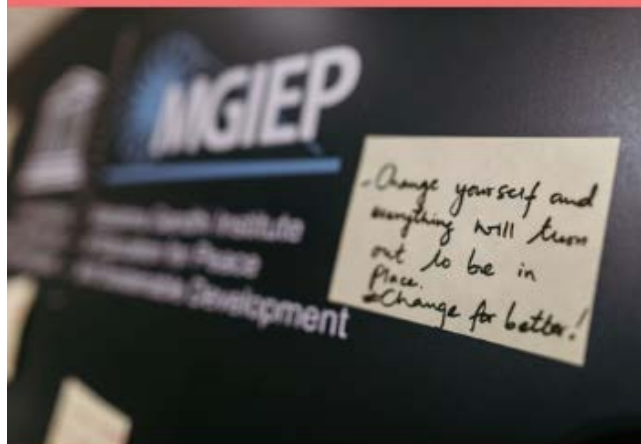 MGIEP
Gandhi Institute
for Peace
Development
- Change yourself and
everything will turn
out to be in
Place.
Change for better!